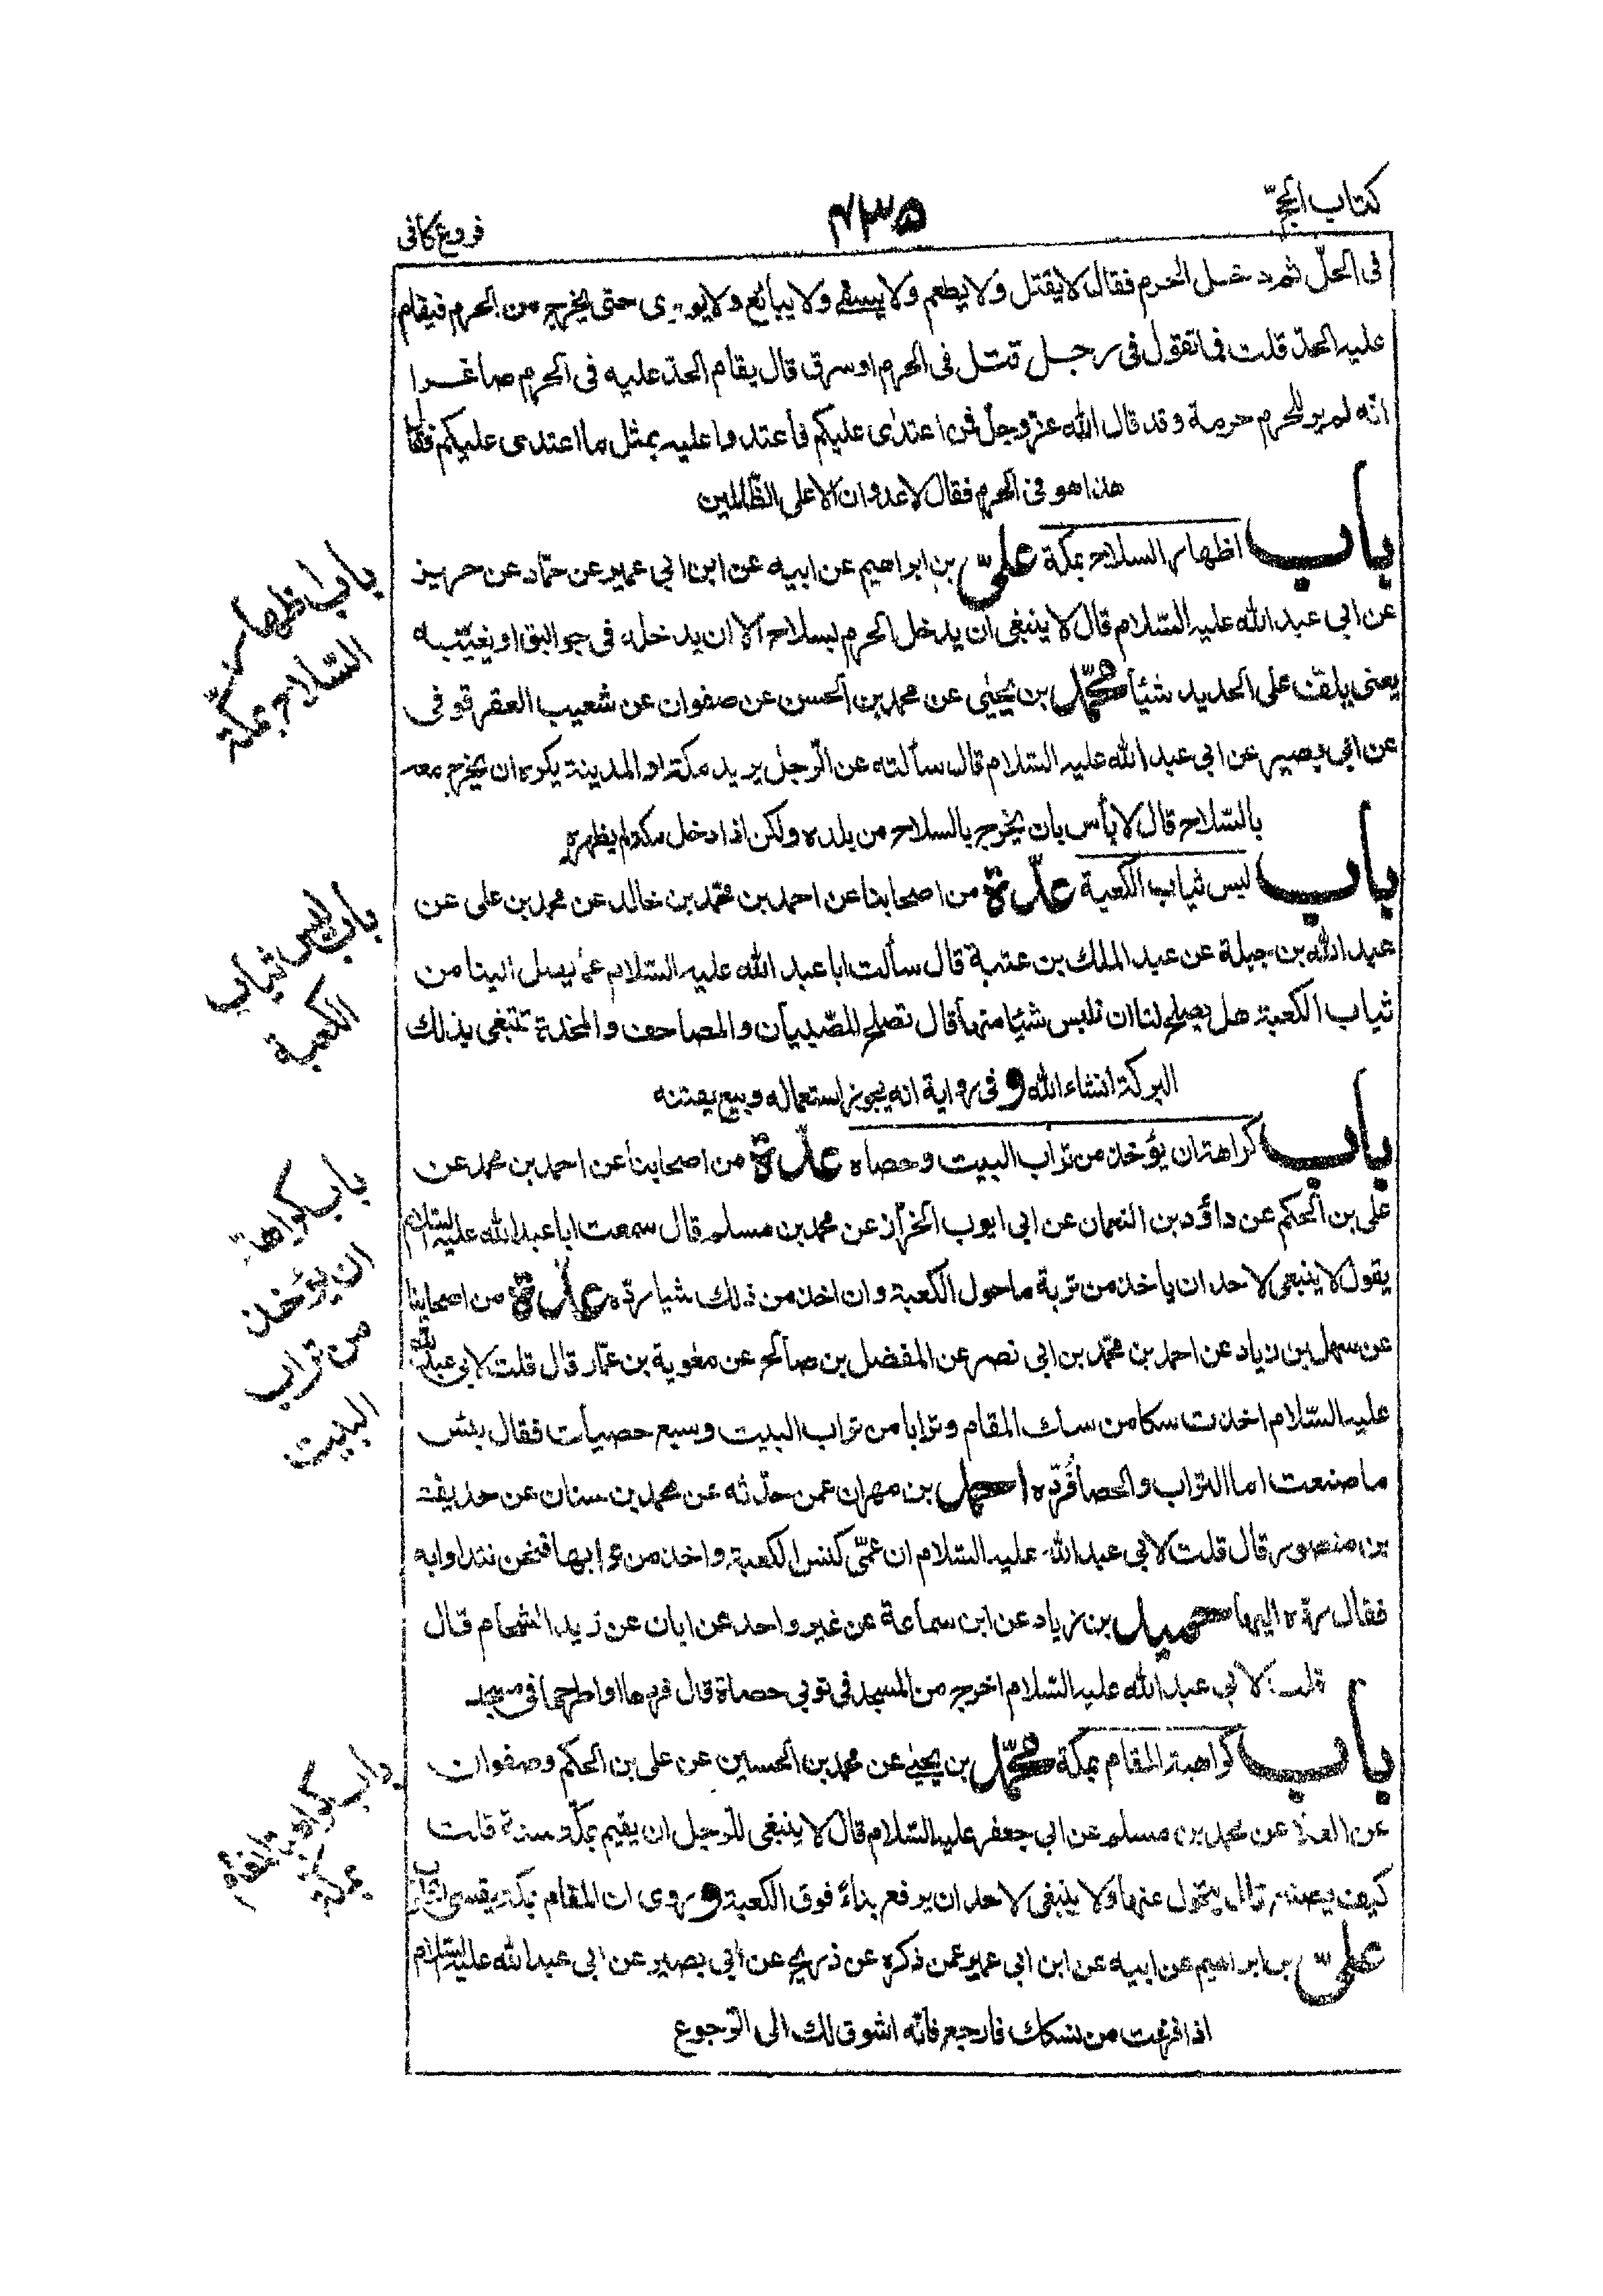 كتاب الحجّ
٤٣٥
فروع كافى
فى الحلّ ثم دخل الحرم فقال لا يقتل ولا يطعم ولا يسقى ولا يبايع ولا يووى حتى يخرج من الحرم فيقام
عليه الحدّ قلت فما تقول فى رجل قتل فى الحرم او سرق قال يقام الحدّ عليه فى الحرم صاغرا
انّه لم ير للحرم حرمة وقد قال الله عزّ وجلّ فمن اعتدى عليكم فاعتدوا عليه بمثل ما اعتدى عليكم فقال
هذا هو فى الحرم فقال لا عدوان الّا على الظّالمين
باب اظهار السلاح بمكة علىّ بن ابراهيم عن ابيه عن ابن ابي عمير عن حمّاد عن حريز
عن ابي عبد الله عليه السّلام قال لا ينبغى ان يدخل الحرم بسلاح الّا ان يدخله فى جوالق او يغيّبه
يعنى يلفّ على الحديد شيئا محمّد بن يحيى عن محمد بن الحسن عن صفوان عن شعيب العقرقوفى
عن ابي بصير عن ابي عبد الله عليه السّلام قال سألته عن الرّجل يريد مكة او المدينة يكره ان يخرج معه
بالسّلاح قال لا بأس بان يخرج بالسلاح من بلده ولكن اذا دخل مكة لم يظهره
باب لبس ثياب الكعبة عدّة من اصحابنا عن احمد بن محمّد بن خالد عن محمد بن على عن
عبد الله بن جبلة عن عبد الملك بن عتبة قال سألت ابا عبد الله عليه السّلام عمّا يصل الينا من
ثياب الكعبة هل يصلح لنا ان نلبس شيئا منها قال تصلح للصّبيان والمصاحف والمخدة تبتغى بذلك
البركة انشاء الله و فى رواية انه يجوز استعماله وبيع بقيته
باب كراهة ان يؤخذ من تراب البيت وحصاه عدّة من اصحابنا عن احمد بن محمد عن
على بن الحكم عن داؤد بن النعمان عن ابي ايوب الخزّاز عن محمد بن مسلم قال سمعت ابا عبد الله عليه السّلام
يقول لا ينبغى لاحد ان ياخذ من تربة ما حول الكعبة وان اخذ من ذلك شيا ردّه عدّة من اصحابنا
عن سهل بن زياد عن احمد بن محمّد بن ابي نصر عن المفضل بن صالح عن معوية بن عمّار قال قلت لابي عبد الله
عليه السّلام اخذت سكا من سك المقام وترابا من تراب البيت وسبع حصيات فقال بئس
ما صنعت اما التراب والحصا فردّه احمد بن مهران عمن حدّثه عن محمد بن سنان عن حذيفة
بن منصور قال قلت لابي عبد الله عليه السّلام ان عمّى كنس الكعبة واخذ من ترابها فنحن نتداوا به
فقال ردّه اليها حميد بن زياد عن ابن سماعة عن غير واحد عن ابان عن زيد الشحام قال
قلت لابي عبد الله عليه السّلام اخرج من المسجد فى ثوبى حصاة قال فردها او اطرحها فى مسجد
باب كراهية المقام بمكة محمّد بن يحيى عن محمد بن الحسين عن على بن الحكم وصفوان
عن العلا عن محمد بن مسلم عن ابي جعفر عليه السّلام قال لا ينبغى للرّجل ان يقيم بمكّة سنة قلت
كيف يصنع قال يتحول عنها ولا ينبغى لاحد ان يرفع بناءً فوق الكعبة و روى ان المقام بمكة يقسى القلب
علىّ بن ابراهيم عن ابيه عن ابن ابي عمير عمن ذكره عن ذريح عن ابي بصير عن ابي عبد الله عليه السّلام
اذا فرغت من نسكك فارجع فانّه اشوق لك الى الرّجوع
باب اظهار
السّلاح بمكة
باب لبس ثياب
الكعبة
باب كراهة
ان يؤخذ
من تراب
البيت
باب كراهية المقام
بمكة